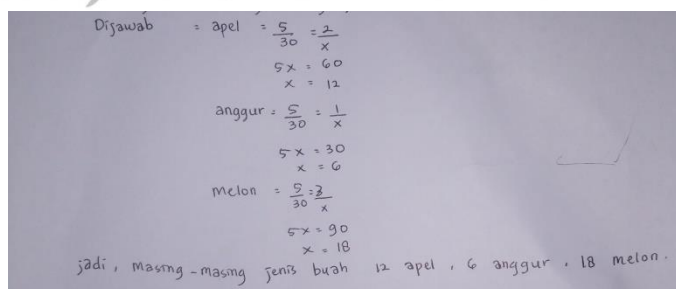 Dijawab = apel = 5/30 = 2/x
5x = 60
x = 12
anggur = 5/30 = 1/x
5x = 30
x = 6
Melon = 5/30 = 3/x
5x = 90
x = 18
jadi, masing-masing jenis buah 12 apel, 6 anggur, 18 melon.